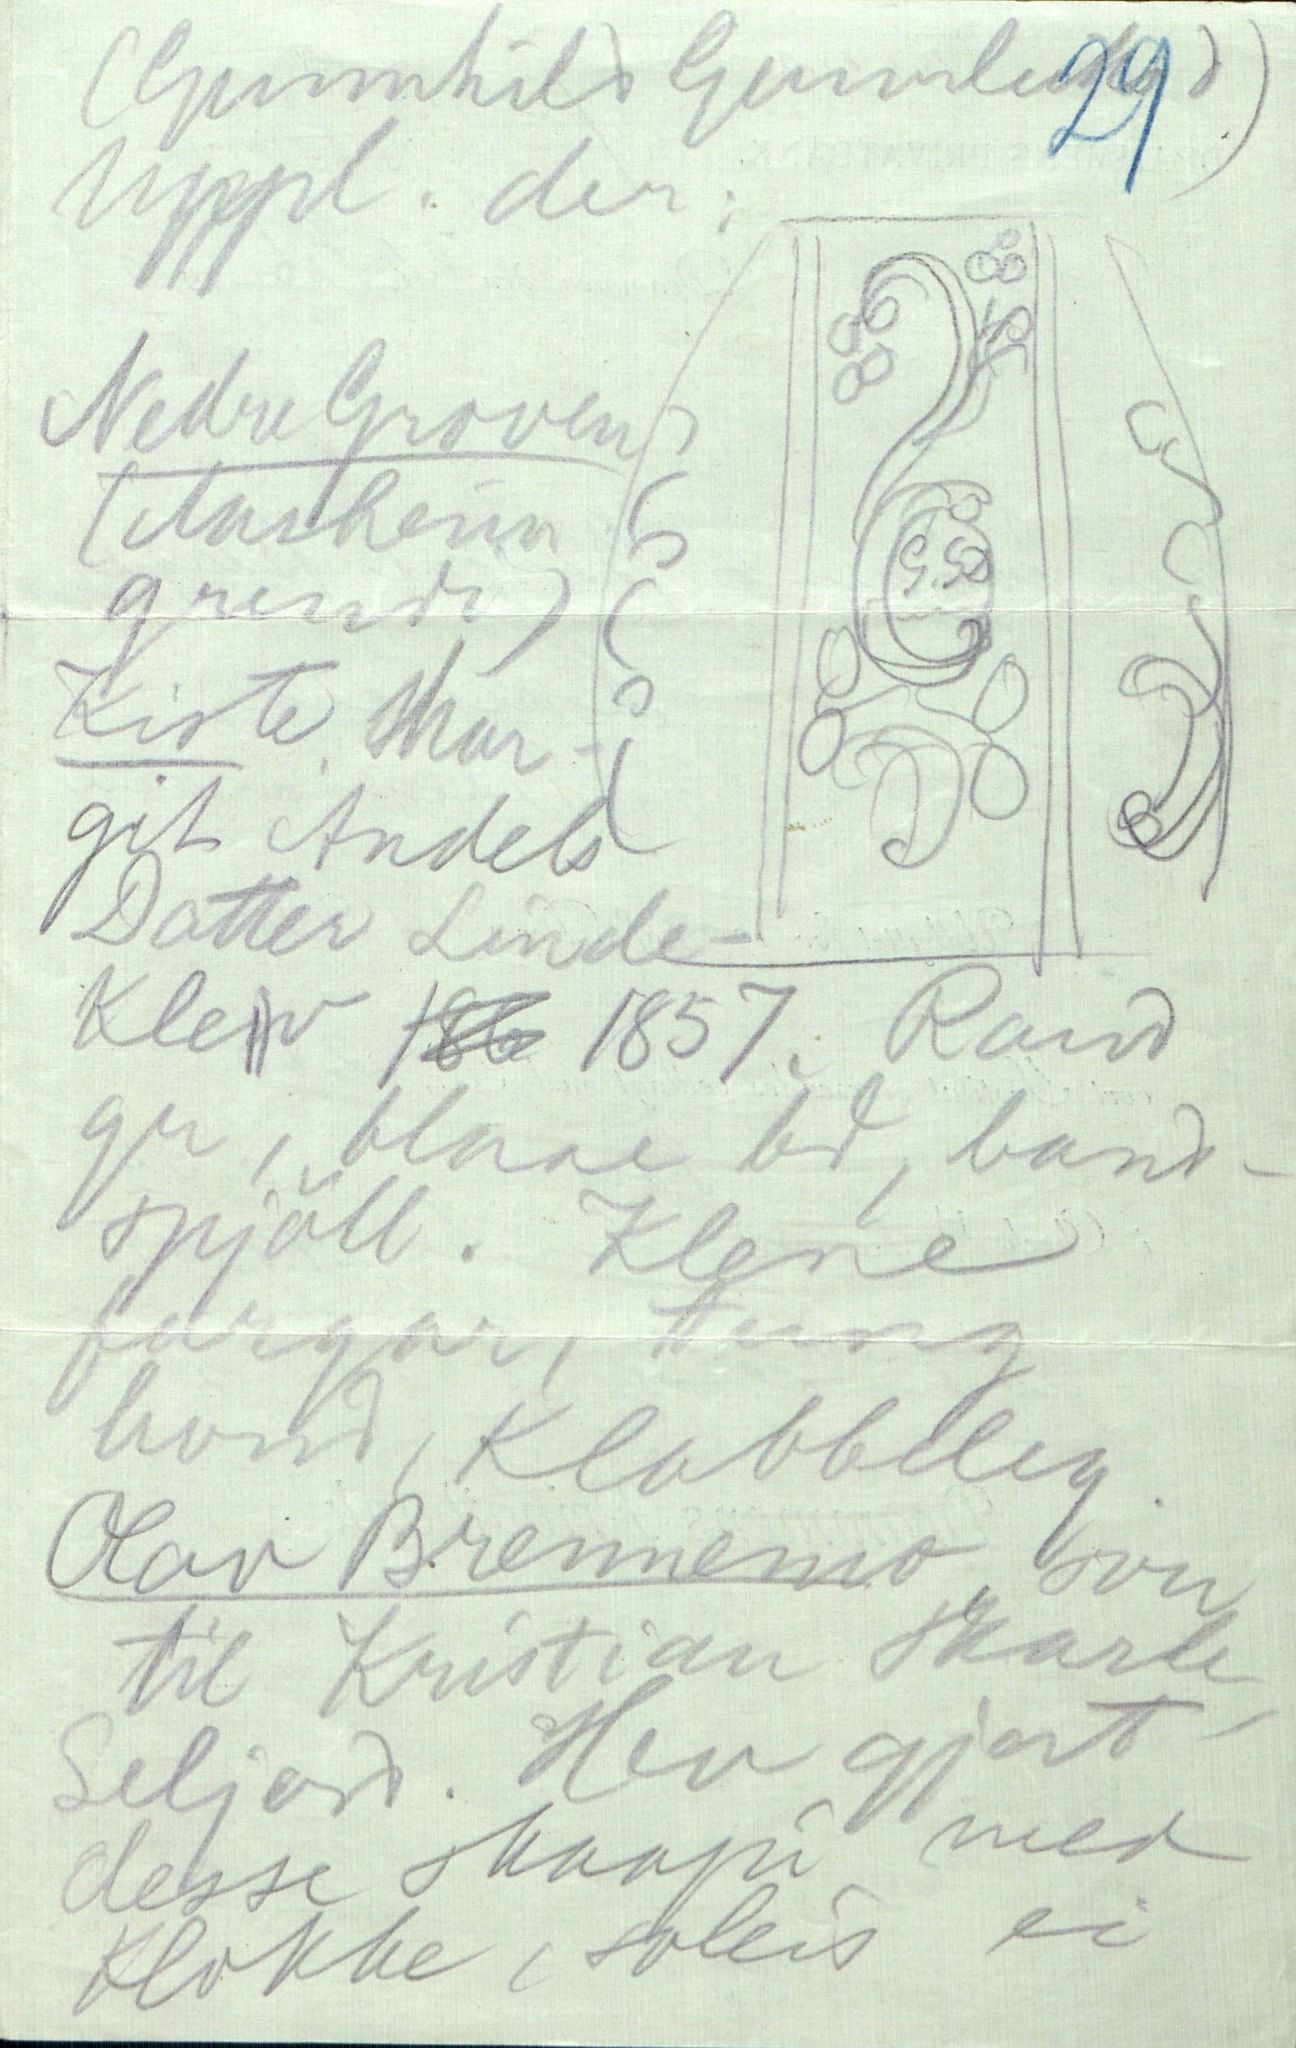 29
(Gunnhild Gunnleiksd)
Uppl. der:
Nedre Groven
(Aasheim
grendi)
Kiste. Mar-
git Andels
Datter Linde-
Kleiv 1857. Raud
gr, blaae bd, band-
spjöll. Klene
fargar, tung
hond, klabbeleg.
Olav Brennemo, son
til Kristian Skarde,
Seljord. Hev gjort
desse skaapi med
klokke, soleis ei
G.GD